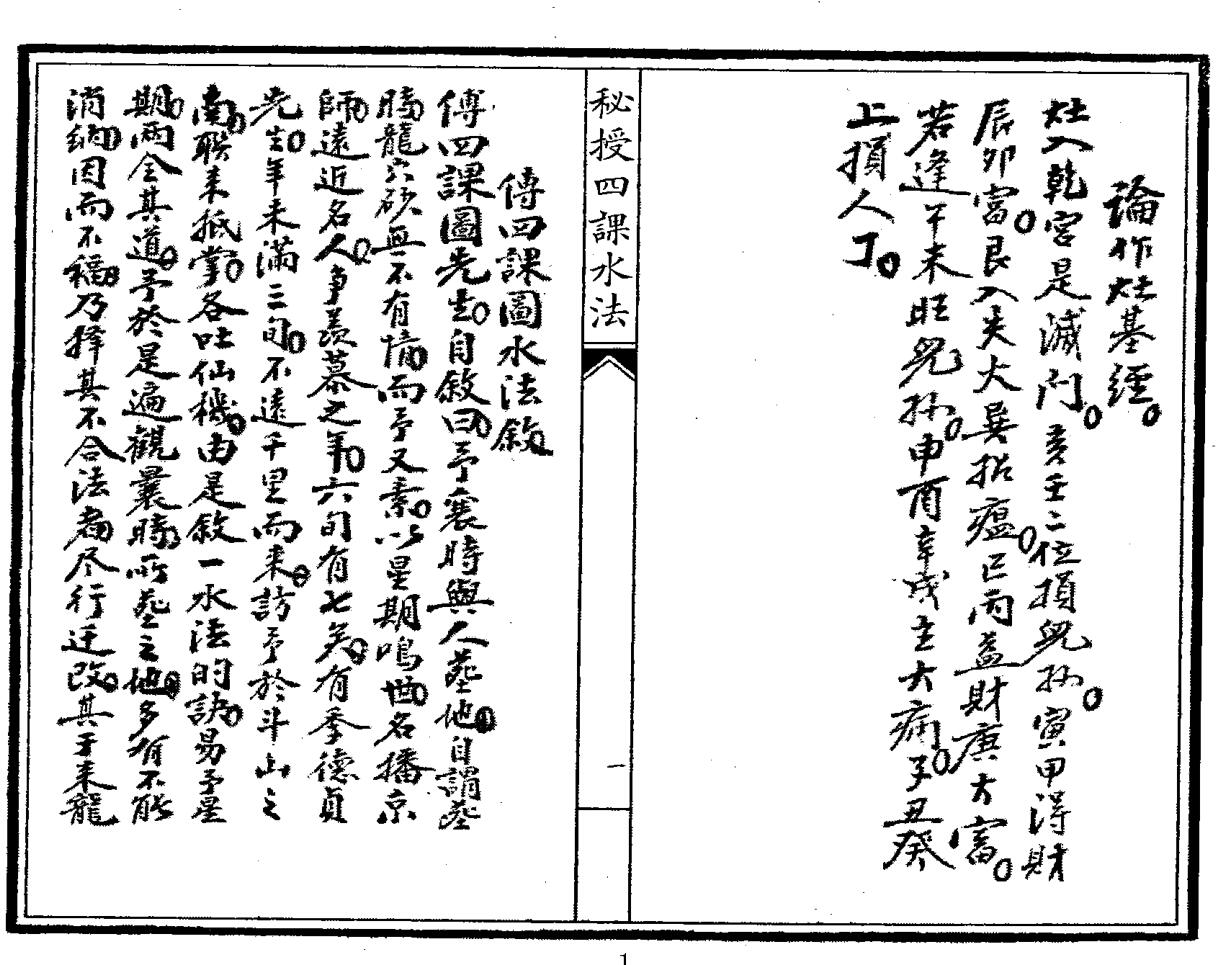 論作灶基經
灶入乾宮是滅門亥壬二位損兒孫寅甲得財
辰卯富艮入失火巽招瘟巳丙益財庚大富
若逢午未旺兒孫申酉辛戌主大病子丑癸
上損人丁
秘授四課水法
一
傅四課圖水法敘
傅四課圖先生自敘曰予曩時與人塟地自謂塟
時龍穴砂無不有情而予又素以星期鳴世名播京
師遠近名人争羨慕之年六旬有七矣有季德貞
先生年未滿三旬不遠千里而来訪予於斗山之
南聯床抵掌各吐仙機由是敘一水法的訣易予星
期兩全其道予於是遍觀曩時所塟之地多有不能
消納因而不福乃擇其不合法者尽行迁改其于来龍
1